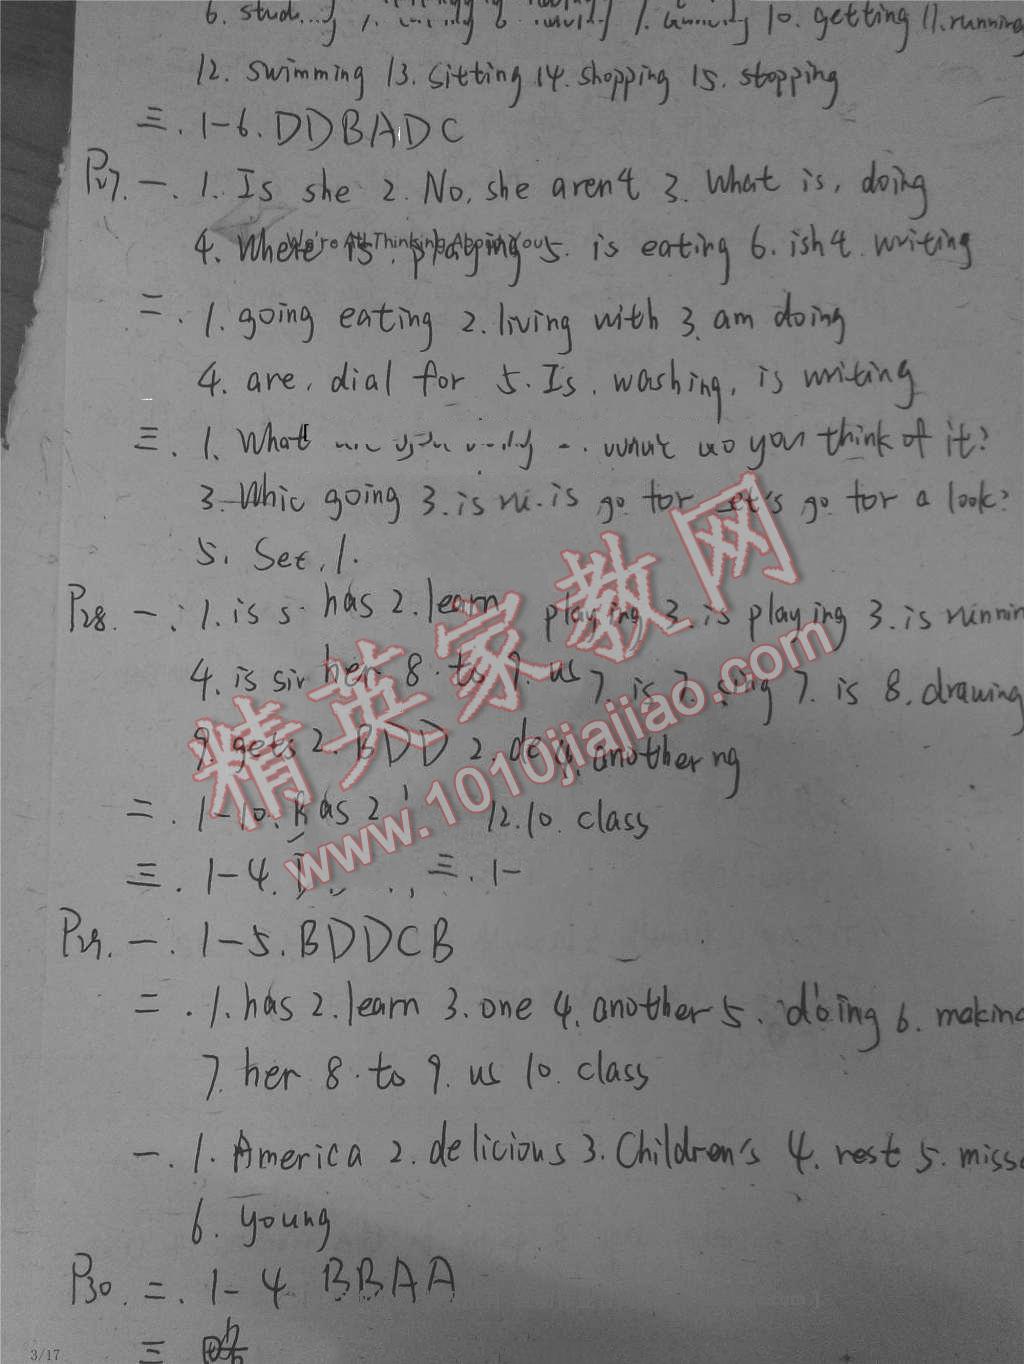 6. 10. getting 11. running
12. swimming 13. sitting 14. shopping 15. stopping
三. 1-6. DDBADC
P27. 一. 1. Is she 2. No, she aren't 3. What is, doing
4. Where is playing 5. is eating 6. isn't writing
We're All Thinking About You
二. 1. going eating 2. living with 3. am doing
4. are, dial for 5. Is, washing, is writing
三. 1. What do you think of it?
3. going 3. is go for Let's go for a look?
5. See, 1.
P28. 一. 1. is s. has 2. learn playing 3. is playing 3. is
4. is her 8. to 9. us 7. is 7. sing 7. is 8. drawing
9. gets 2. BDD 2. 4. another ng
二. 1-10. has 2 12. 10. class
三. 1-4. 三. 1-
P29. 一. 1-5. BDDCB
二. 1. has 2. learn 3. one 4. another 5. doing 6. making
7. her 8. to 9. us 10. class
一. 1. America 2. delicious 3. Children's 4. rest 5.
6. young
P30. 二. 1-4 BBAA
三
精英家教网
www.1010jiajiao.com
3/17